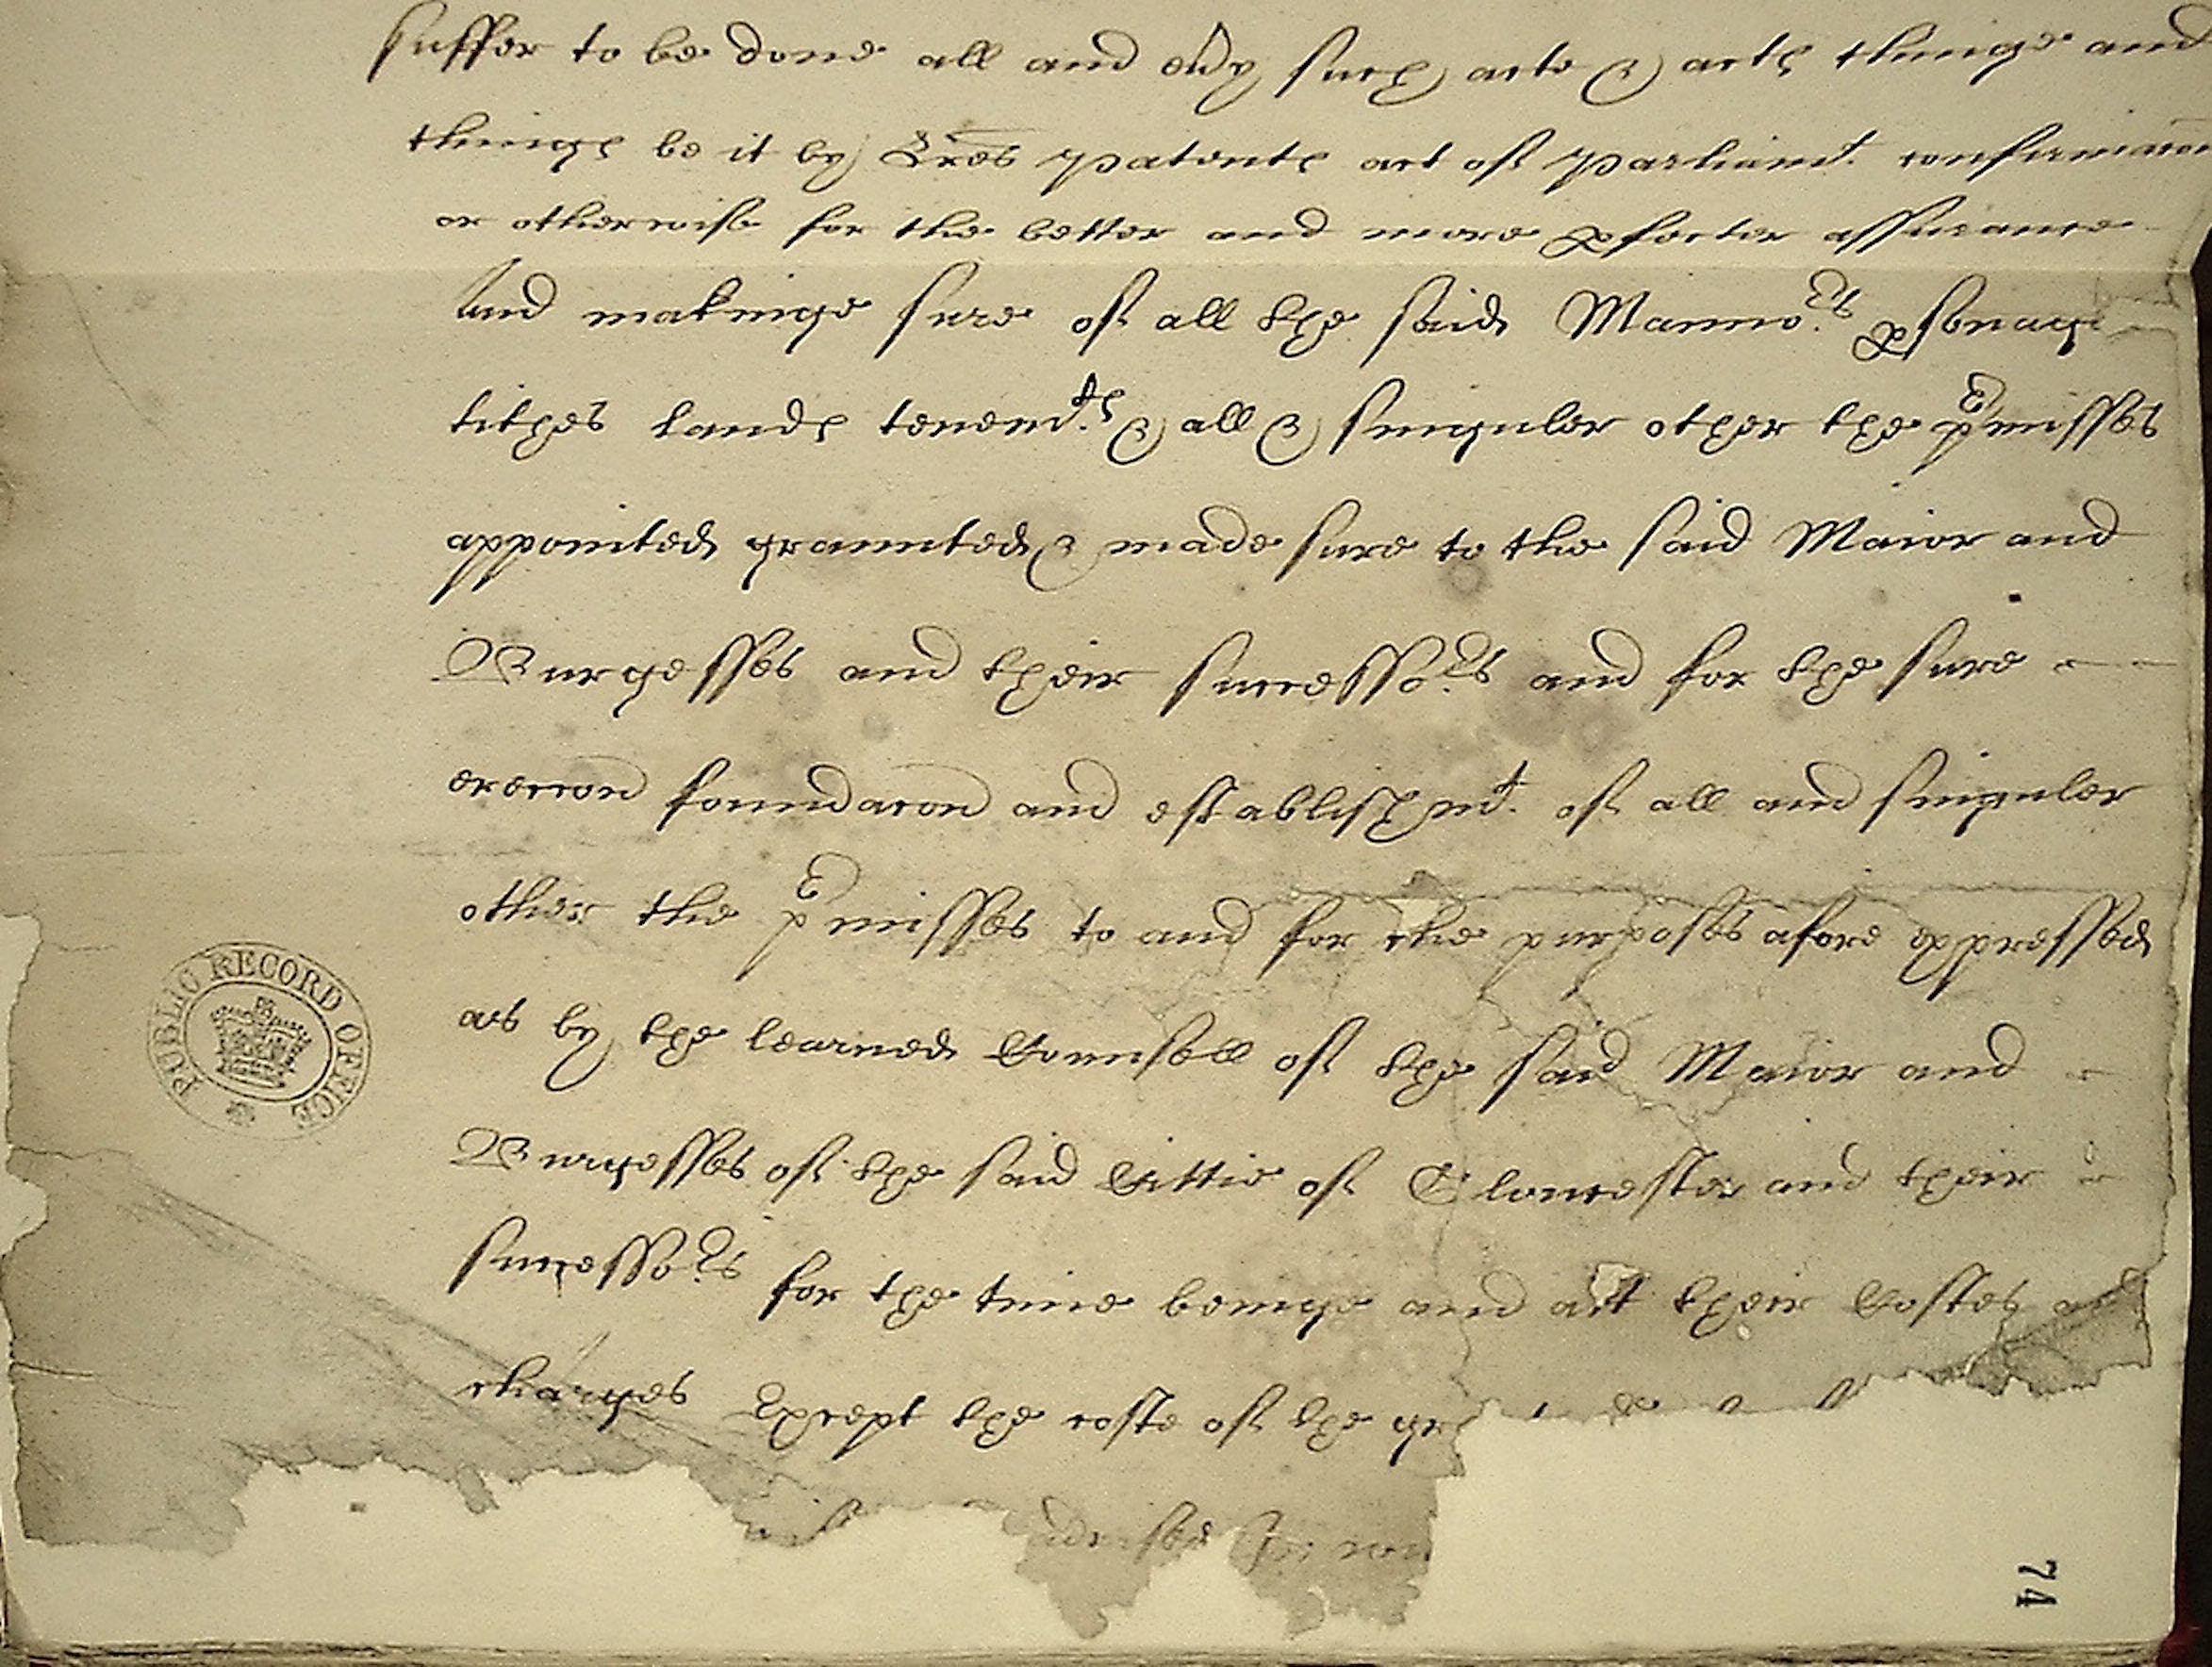 suffer to be done all and ev̄y such acte & actꝭ thinge and
thingꝭ be it by Lr̄es patentꝭ act of Parliamt. confirmacon
or otherwise for the better and more ꝑfecter assurance
And makinge sure of all the said Manno.rs ꝑsonag
tithes landꝭ tenem.tꝭ & all & singuler other the p̄misses
appointed graunted & made sure to the said Maior and
Burgesses and their successo.rs and for the sure
ereccon foundacon and establishmt. of all and singuler
other the p̄misses to and for the purposes afore expressed
as by the learned Counsell of the said Maior and
Burgesses of the said Cittie of Gloucester and their
successo.rs for the time beinge and att their Costes and
charges Except the coste of the gre
PUBLIC RECORD OFFICE
74